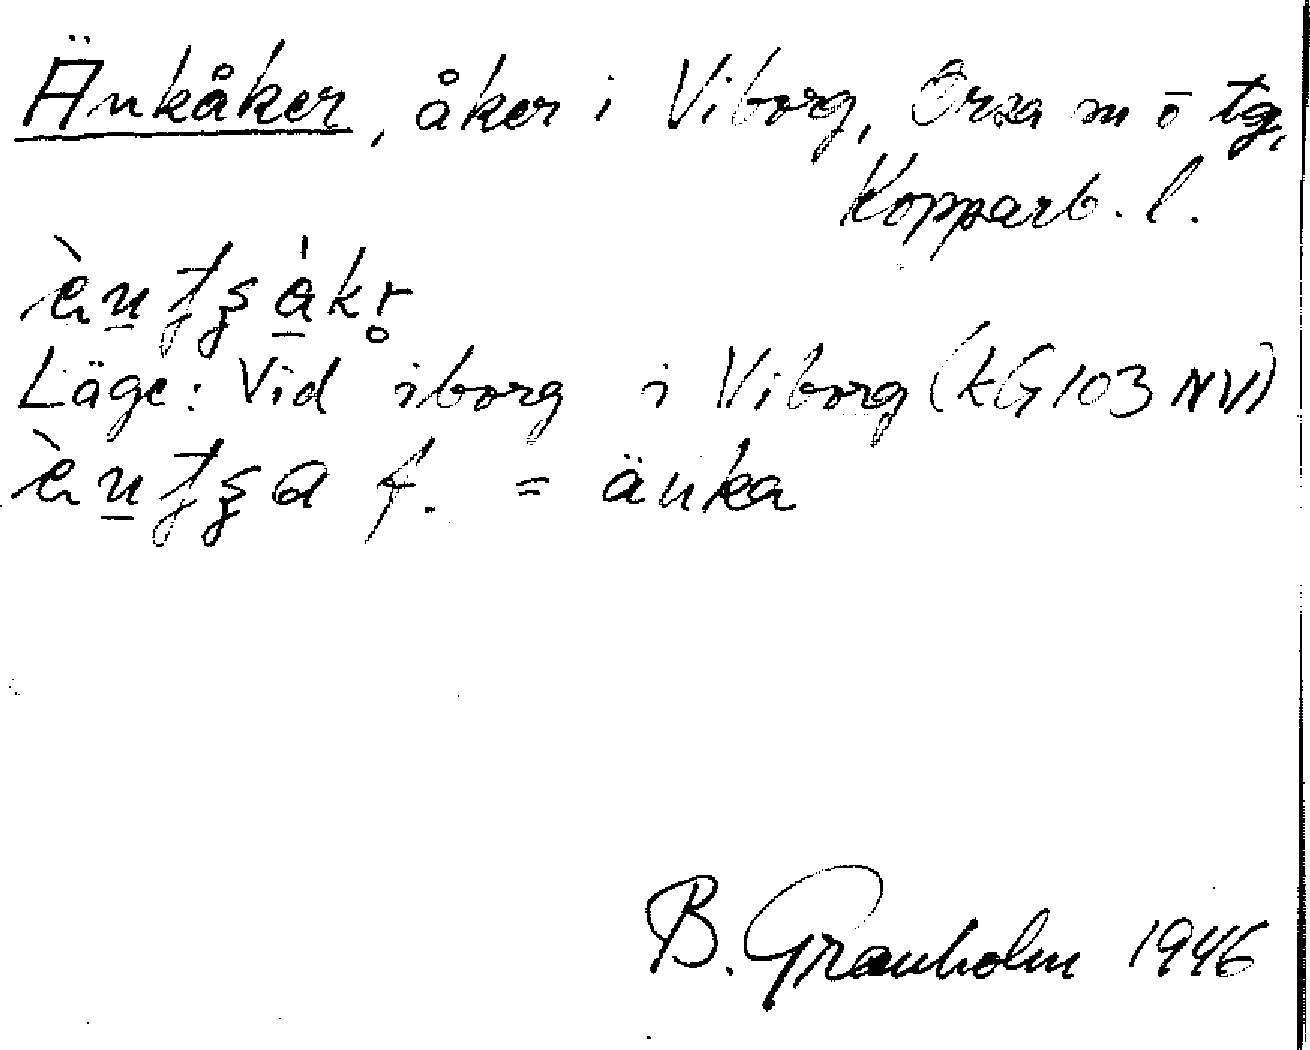 Änkåker, åker i Viborg, Orsa m o tg,
Kopparb. l.
Läge: Vid iborg i Viborg (kG 103 NV)
f. = änka
B. Granholm 1946